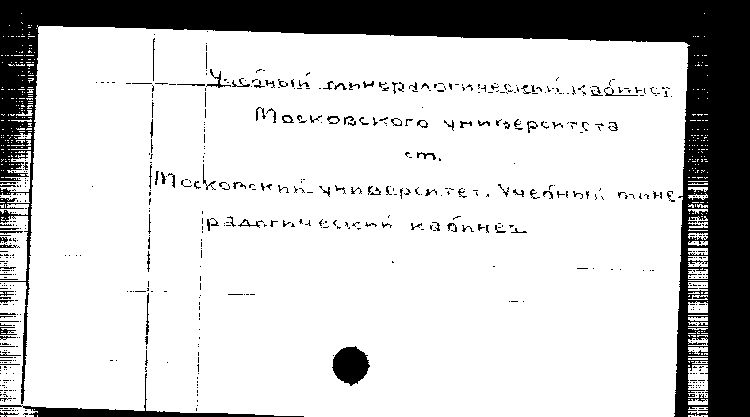 Учебный минералогический кабинет
Московского университета
см.
Московский университет. Учебный мине-
ралогический кабинет